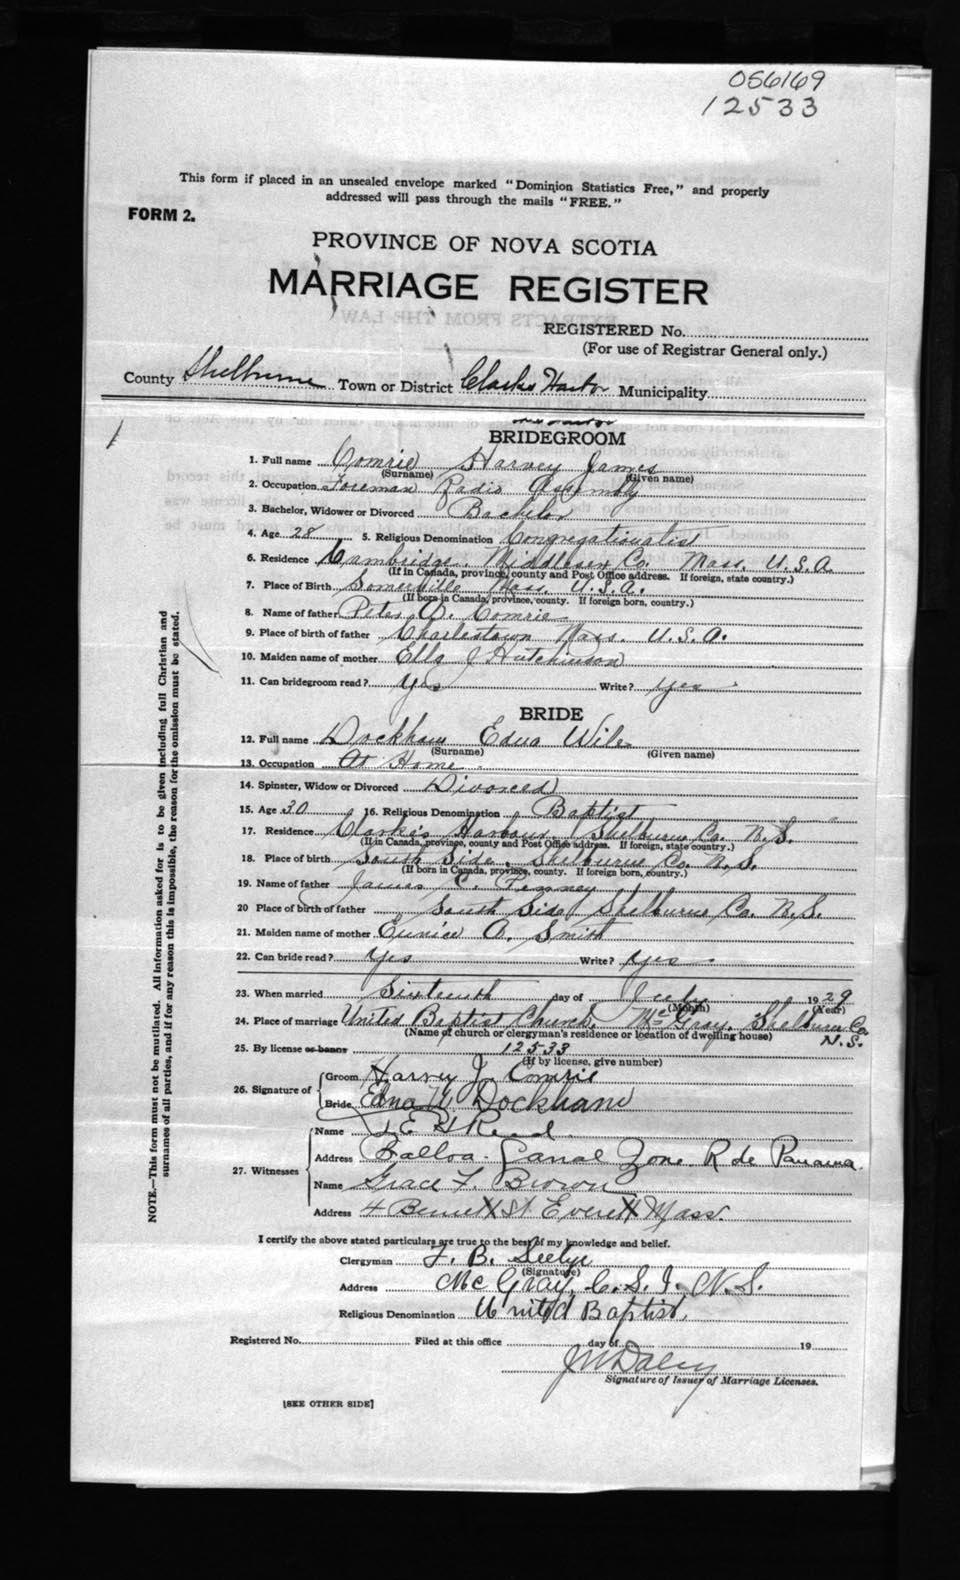 056169
12533
This form if placed in an unsealed envelope marked "Dominion Statistics Free," and properly
addressed will pass through the mails "FREE."
FORM 2.
PROVINCE OF NOVA SCOTIA
MARRIAGE REGISTER
REGISTERED No.
(For use of Registrar General only.)
County Shelburne Town or District Clarks Harbor Municipality
BRIDEGROOM
1. Full name Comrie Harvey James
(Surname) (Given name)
2. Occupation Foreman Radio Assembly
3. Bachelor, Widower or Divorced Bachelor
4. Age 28 5. Religious Denomination Congregationalist
6. Residence Cambridge, Middlesex Co. Mass. U.S.A.
(If in Canada, province, county and Post Office address. If foreign, state country.)
7. Place of Birth Somerville Mass. U.S.A.
(If born in Canada, province, county. If foreign born, country.)
8. Name of father Peter A. Comrie
9. Place of birth of father Charlestown Mass. U.S.A.
10. Maiden name of mother Ella J Hutchinson
11. Can bridegroom read? Yes Write? yes
BRIDE
12. Full name Dockham Edna Wile
(Surname) (Given name)
13. Occupation At Home
14. Spinster, Widow or Divorced Divorced
15. Age 30 16. Religious Denomination Baptist
17. Residence Clarke's Harbour, Shelburne Co. N.S.
(If in Canada, province, county and Post Office address. If foreign, state country.)
18. Place of birth South Side, Shelburne Co. N.S.
(If born in Canada, province, county. If foreign born, country.)
19. Name of father James E. Penney
20 Place of birth of father South Side Shelburne Co. N.S.
21. Maiden name of mother Eunice A. Smith
22. Can bride read? Yes Write? yes
23. When married Sixteenth day of July 1929
(Month) (Year)
24. Place of marriage United Baptist Church, McGray, Shelburne Co. N.S.
(Name of church or clergyman's residence or location of dwelling house)
25. By license or banns 12533
(If by license, give number)
26. Signature of Groom Harvey J. Comrie
Bride Edna W Dockham
27. Witnesses Name
Address Balboa Canal Zone R de Panama
Name Grace F. Brown
Address 4 Bennett St Everett Mass.
I certify the above stated particulars are true to the best of my knowledge and belief.
Clergyman F. B. Seelye
(Signature)
Address McGray, C.S.I. N.S.
Religious Denomination United Baptist,
Registered No. Filed at this office day of 19
J M Daley
Signature of Issuer of Marriage Licenses.
[SEE OTHER SIDE]
NOTE.—This form must not be mutilated. All information asked for is to be given including full Christian and
surnames of all parties, and if for any reason this is impossible, the reason for the omission must be stated.